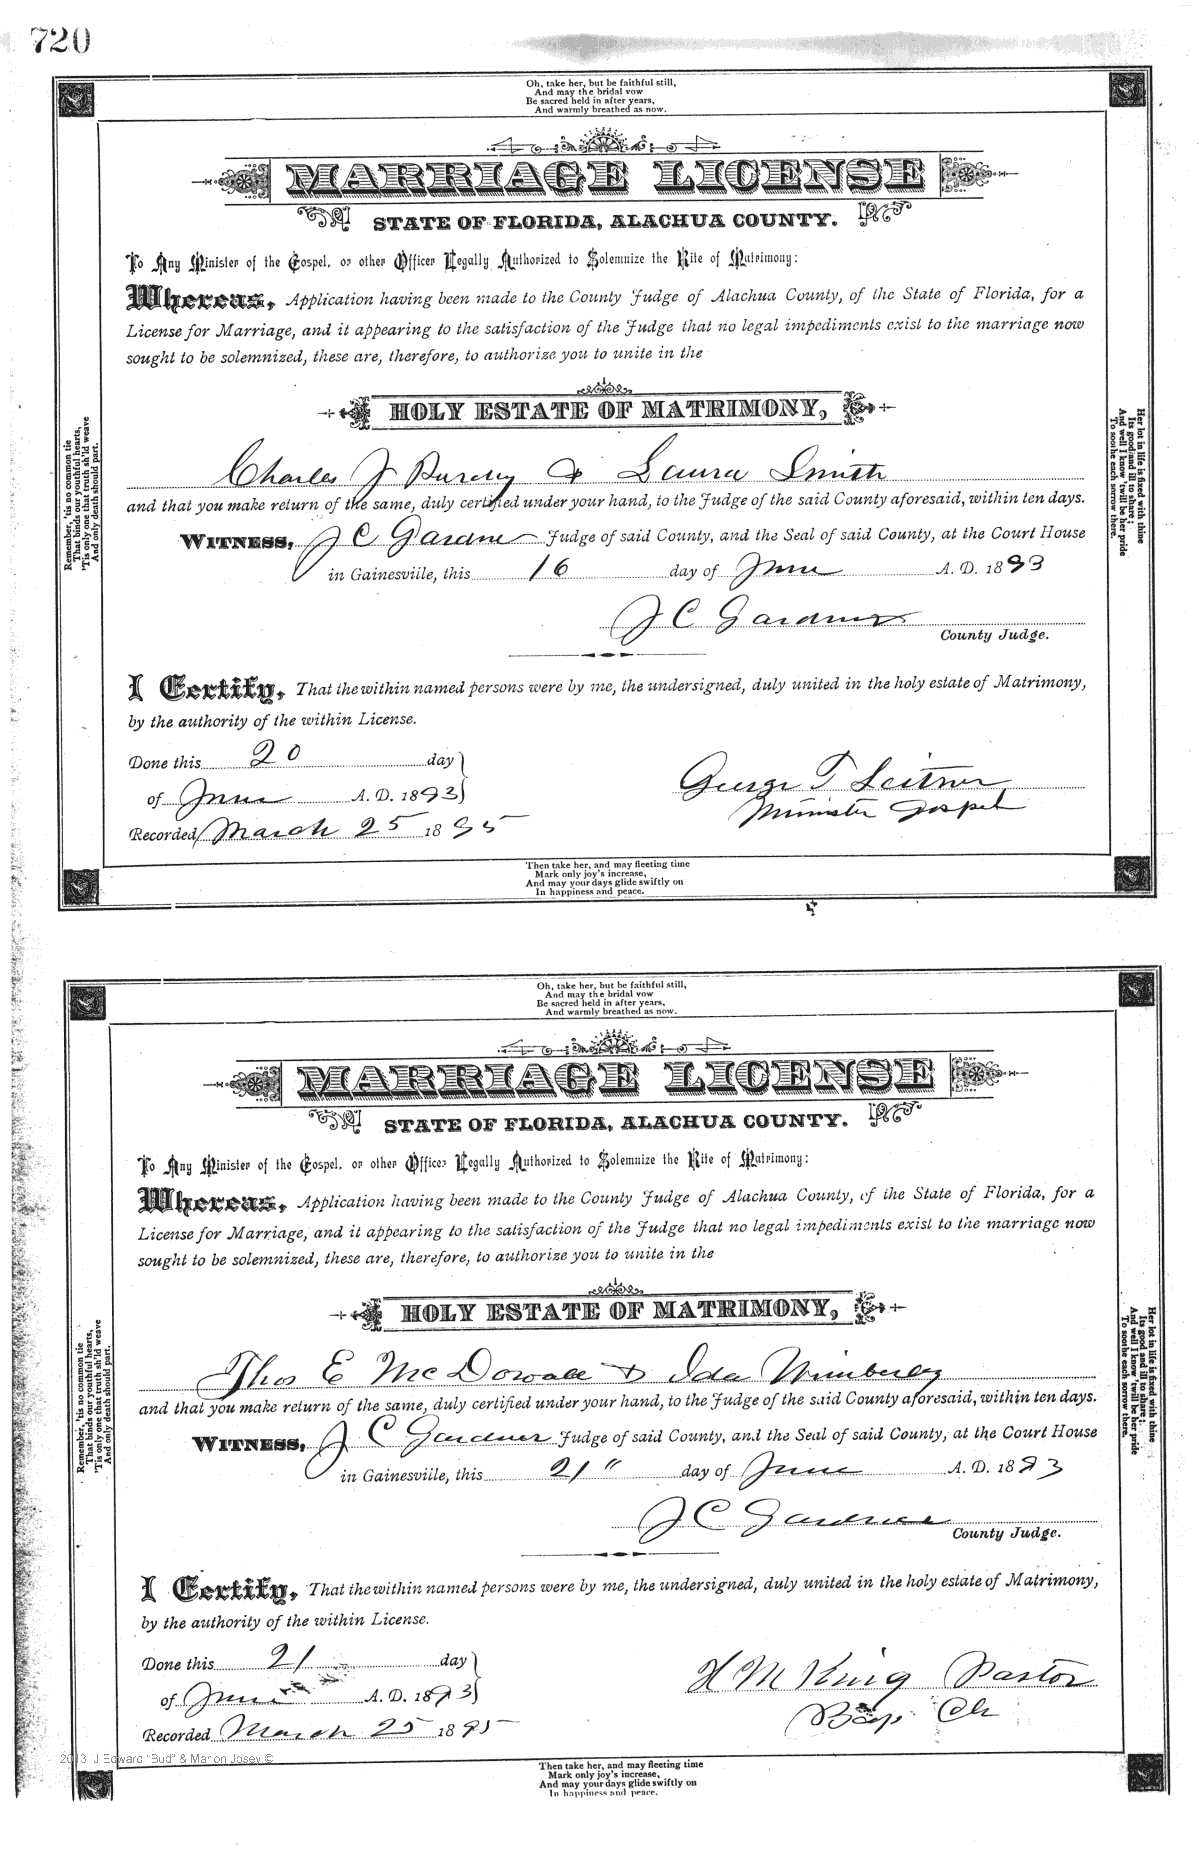 720
Oh, take her, but be faithful still,
And may the bridal vow
Be sacred held in after years,
And warmly breathed as now.
MARRIAGE LICENSE
STATE OF FLORIDA, ALACHUA COUNTY.
To Any Minister of the Gospel, or other Officer Legally Authorized to Solemnize the Rite of Matrimony:
Whereas, Application having been made to the County Judge of Alachua County, of the State of Florida, for a
License for Marriage, and it appearing to the satisfaction of the Judge that no legal impediments exist to the marriage now
sought to be solemnized, these are, therefore, to authorize you to unite in the
HOLY ESTATE OF MATRIMONY,
Charles J Purdy & Laura Smith
and that you make return of the same, duly certified under your hand, to the Judge of the said County aforesaid, within ten days.
WITNESS, J C Gardner Judge of said County, and the Seal of said County, at the Court House
in Gainesville, this 16 day of June A. D. 1893
J C Gardner
County Judge.
I Certify, That the within named persons were by me, the undersigned, duly united in the holy estate of Matrimony,
by the authority of the within License.
Done this 20 day
of June A. D. 1893
George T Leitner
Minister Gospel
Recorded March 25 1895
Remember, 'tis no common tie
That binds our youthful hearts,
'Tis only one that truth sh'ld weave
And only death should part.
Her lot in life is fixed with thine
Its good and ill to share;
And well I know 'twill be her pride
To soothe each sorrow there.
Then take her, and may fleeting time
Mark only joy's increase,
And may your days glide swiftly on
In happiness and peace.
Oh, take her, but be faithful still,
And may the bridal vow
Be sacred held in after years,
And warmly breathed as now.
MARRIAGE LICENSE
STATE OF FLORIDA, ALACHUA COUNTY.
To Any Minister of the Gospel, or other Officer Legally Authorized to Solemnize the Rite of Matrimony:
Whereas, Application having been made to the County Judge of Alachua County, of the State of Florida, for a
License for Marriage, and it appearing to the satisfaction of the Judge that no legal impediments exist to the marriage now
sought to be solemnized, these are, therefore, to authorize you to unite in the
HOLY ESTATE OF MATRIMONY,
Thos E McDowall & Ida Wimberly
and that you make return of the same, duly certified under your hand, to the Judge of the said County aforesaid, within ten days.
WITNESS, J C Gardner Judge of said County, and the Seal of said County, at the Court House
in Gainesville, this 21" day of June A. D. 1893
J C Gardner
County Judge.
I Certify, That the within named persons were by me, the undersigned, duly united in the holy estate of Matrimony,
by the authority of the within License.
Done this 21 day
of June A. D. 1893
H M King Pastor
Bap Ch
Recorded March 25 1895
Remember, 'tis no common tie
That binds our youthful hearts,
'Tis only one that truth sh'ld weave
And only death should part.
Her lot in life is fixed with thine
Its good and ill to share;
And well I know 'twill be her pride
To soothe each sorrow there.
2013 J Edward "Bud" & Marion Josey ©
Then take her, and may fleeting time
Mark only joy's increase,
And may your days glide swiftly on
In happiness and peace.